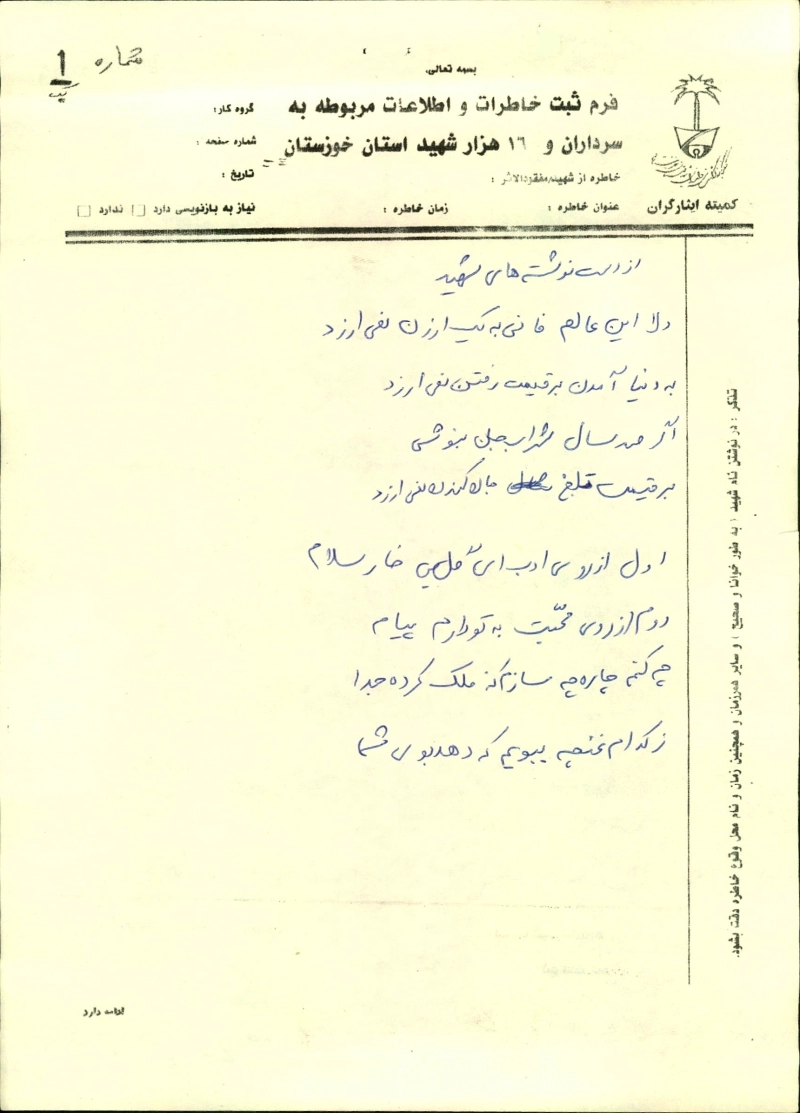 شماره ۱
یک
بسمه تعالی
فرم ثبت خاطرات و اطلاعات مربوطه به
سرداران و ۱۶ هزار شهید استان خوزستان
گروه کار:
شماره صفحه :
تاریخ :
خاطره از شهید/مفقودالاثر :
کمیته ایثارگران
عنوان خاطره :
زمان خاطره :
نیاز به بازنویسی دارد ندارد
از دست نوشته های شهید
دلا این عالم فانی به یک ارزن نمی ارزد
به دنیا آمدن بر قیمت رفتن نمی ارزد
اگر صد سال شراب بنوشی
بر قیمت تلخ جان کندن نمی ارزد
اول از روی ادب ای گل بی خار سلام
دوم از روی محبّت به تو دارم پیام
چه کنم چاره چه سازم که ملک کرده جدا
ز کدام غنچه ببویم که دهد بوی شما
تذکر : در نوشتن نام شهید ( به طور خوانا و صحیح ) و سایر همرزمان و همچنین زمان و نام محل وقوع خاطره دقت بشود.
ادامه دارد